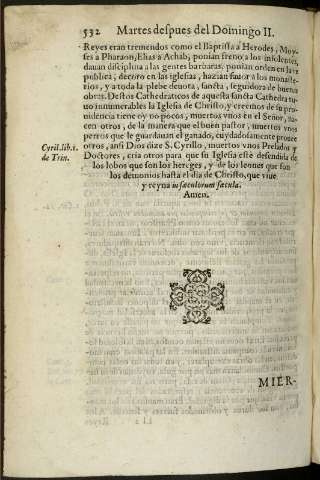 532 Martes despues del Domingo II.
Reyes eran tremendos como el Baptista à Herodes, Moy-
ses a Pharaon, Elias a Achab; ponian freno a los insolentes,
dauan disciplina a las gentes barbaras, ponian orden en la re
publica; decoro en las iglesias, hazian fauor a los monaste-
rios, y a toda la plebe deuota, sancta, seguidora de buenas
obras. Destos Cathedraticos de aquesta sancta Cathedra tu-
uo innumerables la Iglesia de Christo, y creemos de su pro-
uidencia tiene oy no pocos, muertos vnos en el Señor, na-
cen otros, de la manera que el buen pastor, muertos vnos
perros que le guardauan el ganado, cuydadosamente prouee
otros, ansi Dios dize S. Cyrillo, muertos vnos Prelados y
Doctores, cria otros para que su Iglesia estè defendida de
los lobos que son los hereges, y de los leones que son
los demonios hasta el dia de Christo, que viue
y reyna in sæculorum sæcula.
Amen.
Cyril. lib. 1.
de Trin.
MIER-